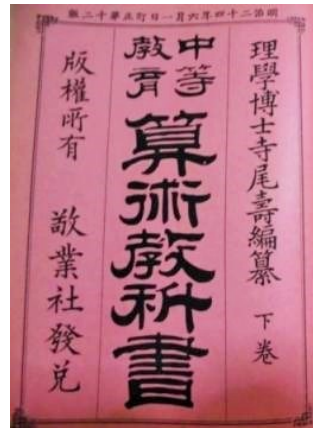 明治二十四年六月一日訂正第十二版
理學博士寺尾壽編纂 下卷
中等
敎育
算術敎科書
版權所有 敬業社發兌